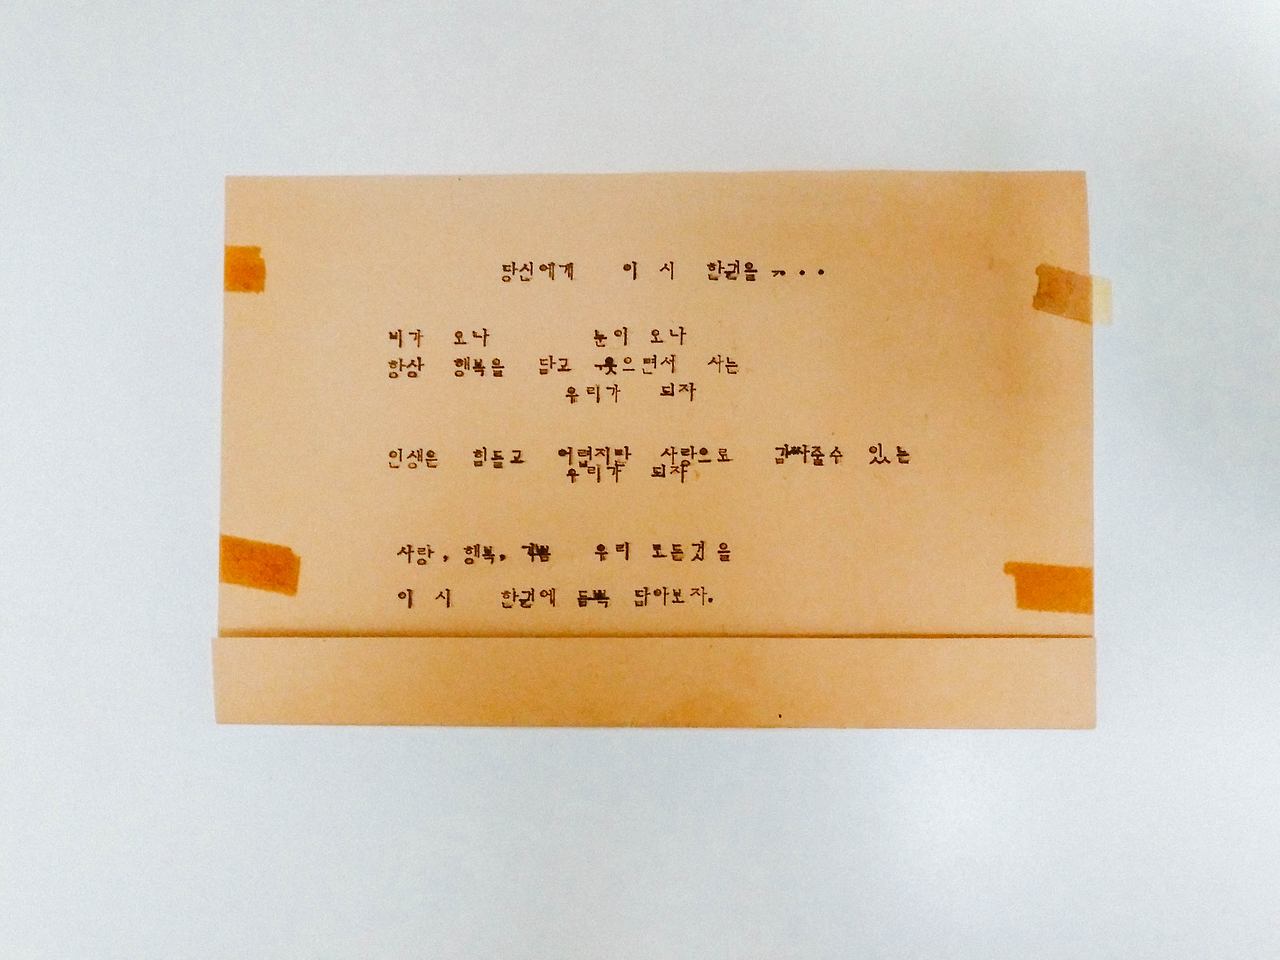 당신에게 이 시 한권을 ...
비가 오나 눈이 오나
항상 행복을 담고 웃으면서 사는
우리가 되자
인생은 힘들고 어렵지만 사랑으로 감싸줄수 있는
우리가 되자
사랑, 행복, 기쁨 우리 모든것을
이 시 한권에 듬뿍 담아보자.